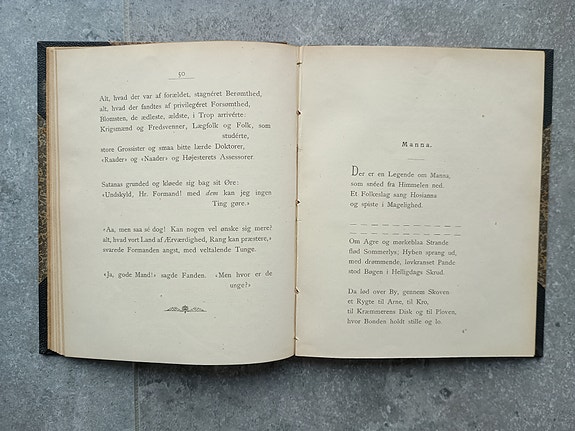 50
Alt, hvad der var af forældet, stagnéret Berømthed,
alt, hvad der fandtes af privilegéret Forsømthed,
Blomsten, de ædleste, ældste, i Trop arrivérte:
Krigsmænd og Fredvenner, Lægfolk og Folk, som
studérte,
store Grossister og smaa bitte lærde Doktorer,
«Raader» og «Naader» og Højesterets Assessorer
Satanas grunded og kløede sig bag sit Øre:
«Undskyld, Hr. Formand! med dem kan jeg ingen
Ting gøre.»
«Aa, men saa sé dog! Kan nogen vel ønske sig mere?
alt, hvad vort Land af Ærværdighed, Rang kan præstere,»
svarede Formanden angst, med veltalende Tunge.
«Ja, gode Mand!» sagde Fanden. «Men hvor er de
unge?»
Manna.
Der er en Legende om Manna,
som snéed fra Himmelen ned.
Et Folkeslag sang Hosianna
og spiste i Magelighed.
Om Agre og mørkeblaa Strande
flød Sommerlys; Hyben sprang ud,
med drømmende, løvkranset Pande
stod Bøgen i Helligdags Skrud.
Da lød over By, gennem Skoven
et Rygte til Arne, til Kro,
til Kræmmerens Disk og til Ploven,
hvor Bonden holdt stille og lo.